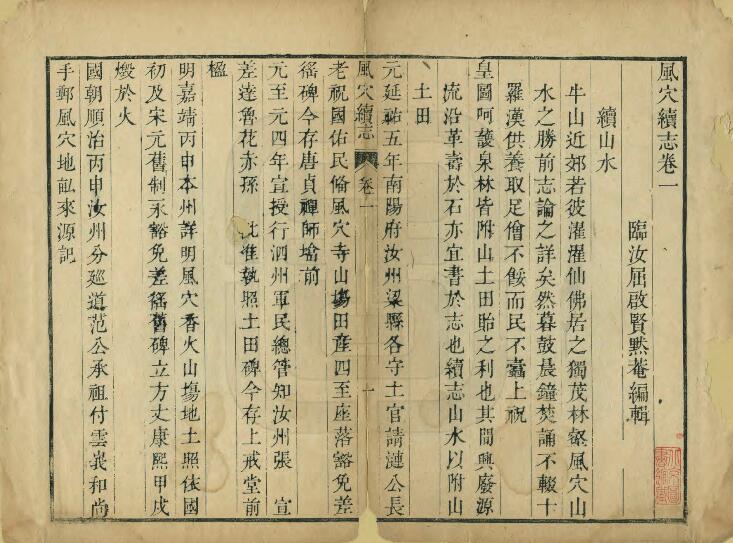 風穴續志卷一
臨汝屈啟賢黙菴編輯
續山水
牛山近郊若彼濯濯仙佛居之獨茂林壑風穴山
水之勝前志論之詳矣然暮鼓晨鐘焚誦不輟十
羅漢供養取足僧不餒而民不蠹上祝
皇圖呵護泉林皆附山土田貽之利也其間興廢源
流沿革壽於石亦宜書於志也續志山水以附山
土田
元延祐五年南陽府汝州梁縣各守土官請漣公長
風穴續志 卷一 一
老祝國佑民脩風穴寺山塲田產四至座落豁免差
徭碑今存唐貞禪師塔前
元至元四年宣授行泗州軍民總管知汝州張 宣
差達魯花赤孫 批准執照土田碑今存上戒堂前
楹
明嘉靖丙申本州詳明風穴香火山塲地土照依國
初及宋元舊制永豁免差徭舊碑立方丈康熙甲戌
燬於火
國朝順治丙申汝州分廵道范公承祖付雲峩和尚
手郵風穴地畝來源記